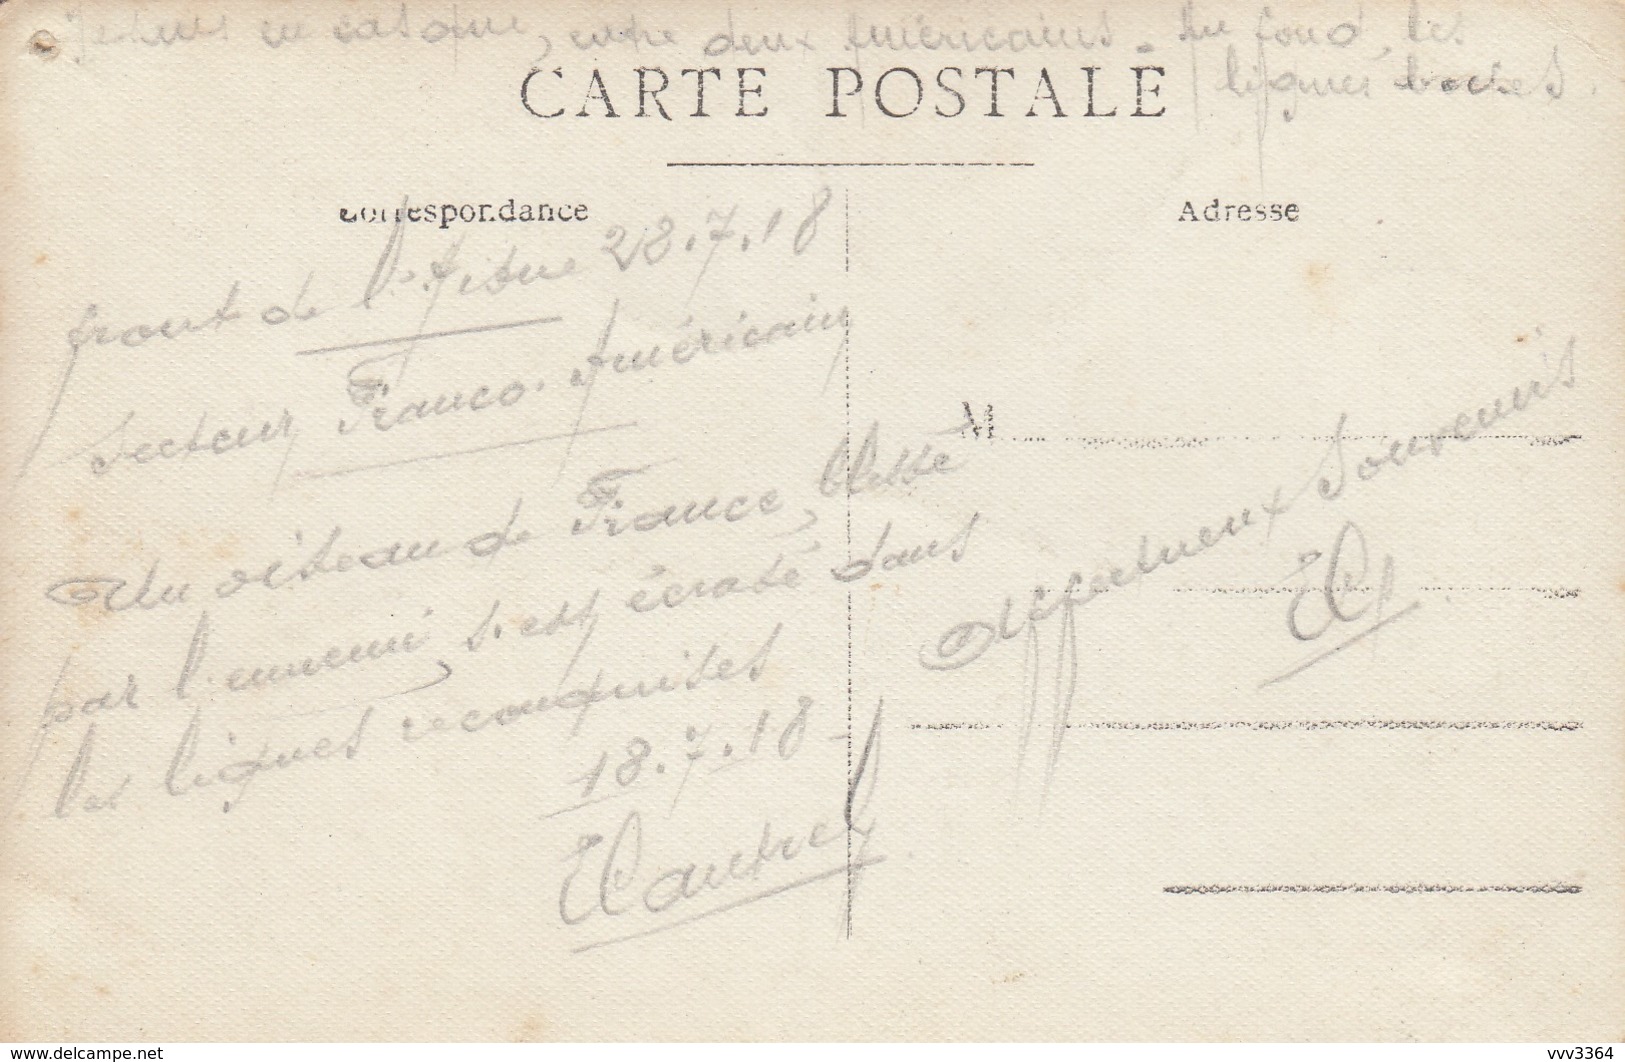 Je suis en casque, entre deux Américains. Au fond, les
lignes boches.
CARTE POSTALE
Correspondance
Adresse
front de l'Aisne 28.7.18
Secteur Franco-Américain
Un oiseau de France, blessé
par l'ennemi, s'est écrasé dans
les lignes reconquises
18.7.18
M
Affectueux Souvenirs
www.delcampe.net
vvv3364